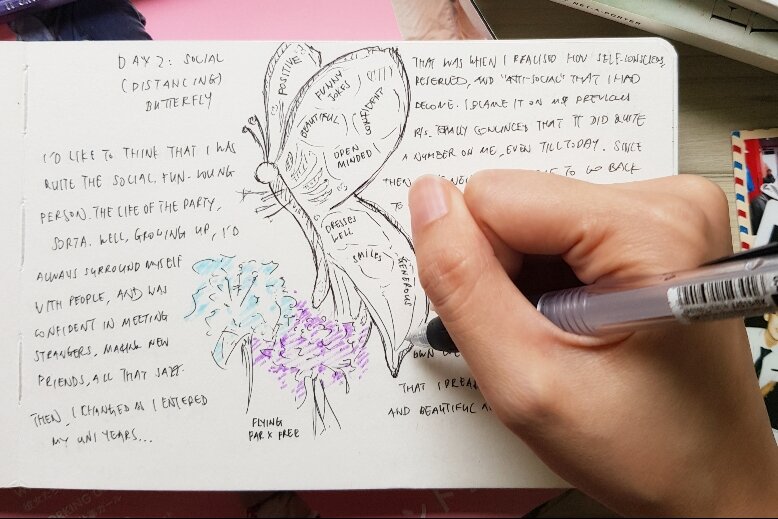 DAY 2: SOCIAL
(DISTANCING)
BUTTERFLY
I'D LIKE TO THINK THAT I WAS
QUITE THE SOCIAL, FUN-LOVING
PERSON. THE LIFE OF THE PARTY,
SORTA. WELL, GROWING UP, I'D
ALWAYS SURROUND MYSELF
WITH PEOPLE, AND WAS
CONFIDENT IN MEETING
STRANGERS, MAKING NEW
FRIENDS, ALL THAT JAZZ.
THEN, I CHANGED AS I ENTERED
MY UNI YEARS...
POSITIVE
FUNNY
JOKES
BEAUTIFUL
CONFIDENT
OPEN
MINDED
DRESSES
WELL
SMILES
GENEROUS
FLYING
FAR & FREE
THAT WAS WHEN I REALISED HOW SELF-CONSCIOUS,
RESERVED, AND "ANTI-SOCIAL" THAT I HAD
BECOME. I BLAME IT ON MY PREVIOUS
R/S. TOTALLY CONVINCED THAT IT DID QUITE
A NUMBER ON ME, EVEN TILL TODAY. SINCE
THEN TO GO BACK
TO
OWN
THAT I
AND BEAUTIFUL
NET-A-PORTER